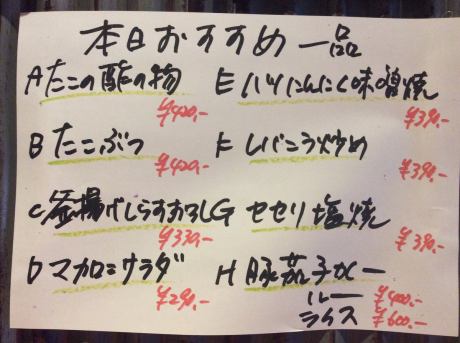 本日おすすめ一品
Aたこの酢の物
¥420,-
Bたこぶつ
¥420,-
C釜揚げしらすおろし
¥330,-
Dマカロニサラダ
¥290,-
Eハツにんにく味噌焼
¥390,-
Fレバニラ炒め
¥390,-
Gセセリ塩焼
¥390,-
H豚茄子カレー
ルー ¥400,-
ライス ¥600,-